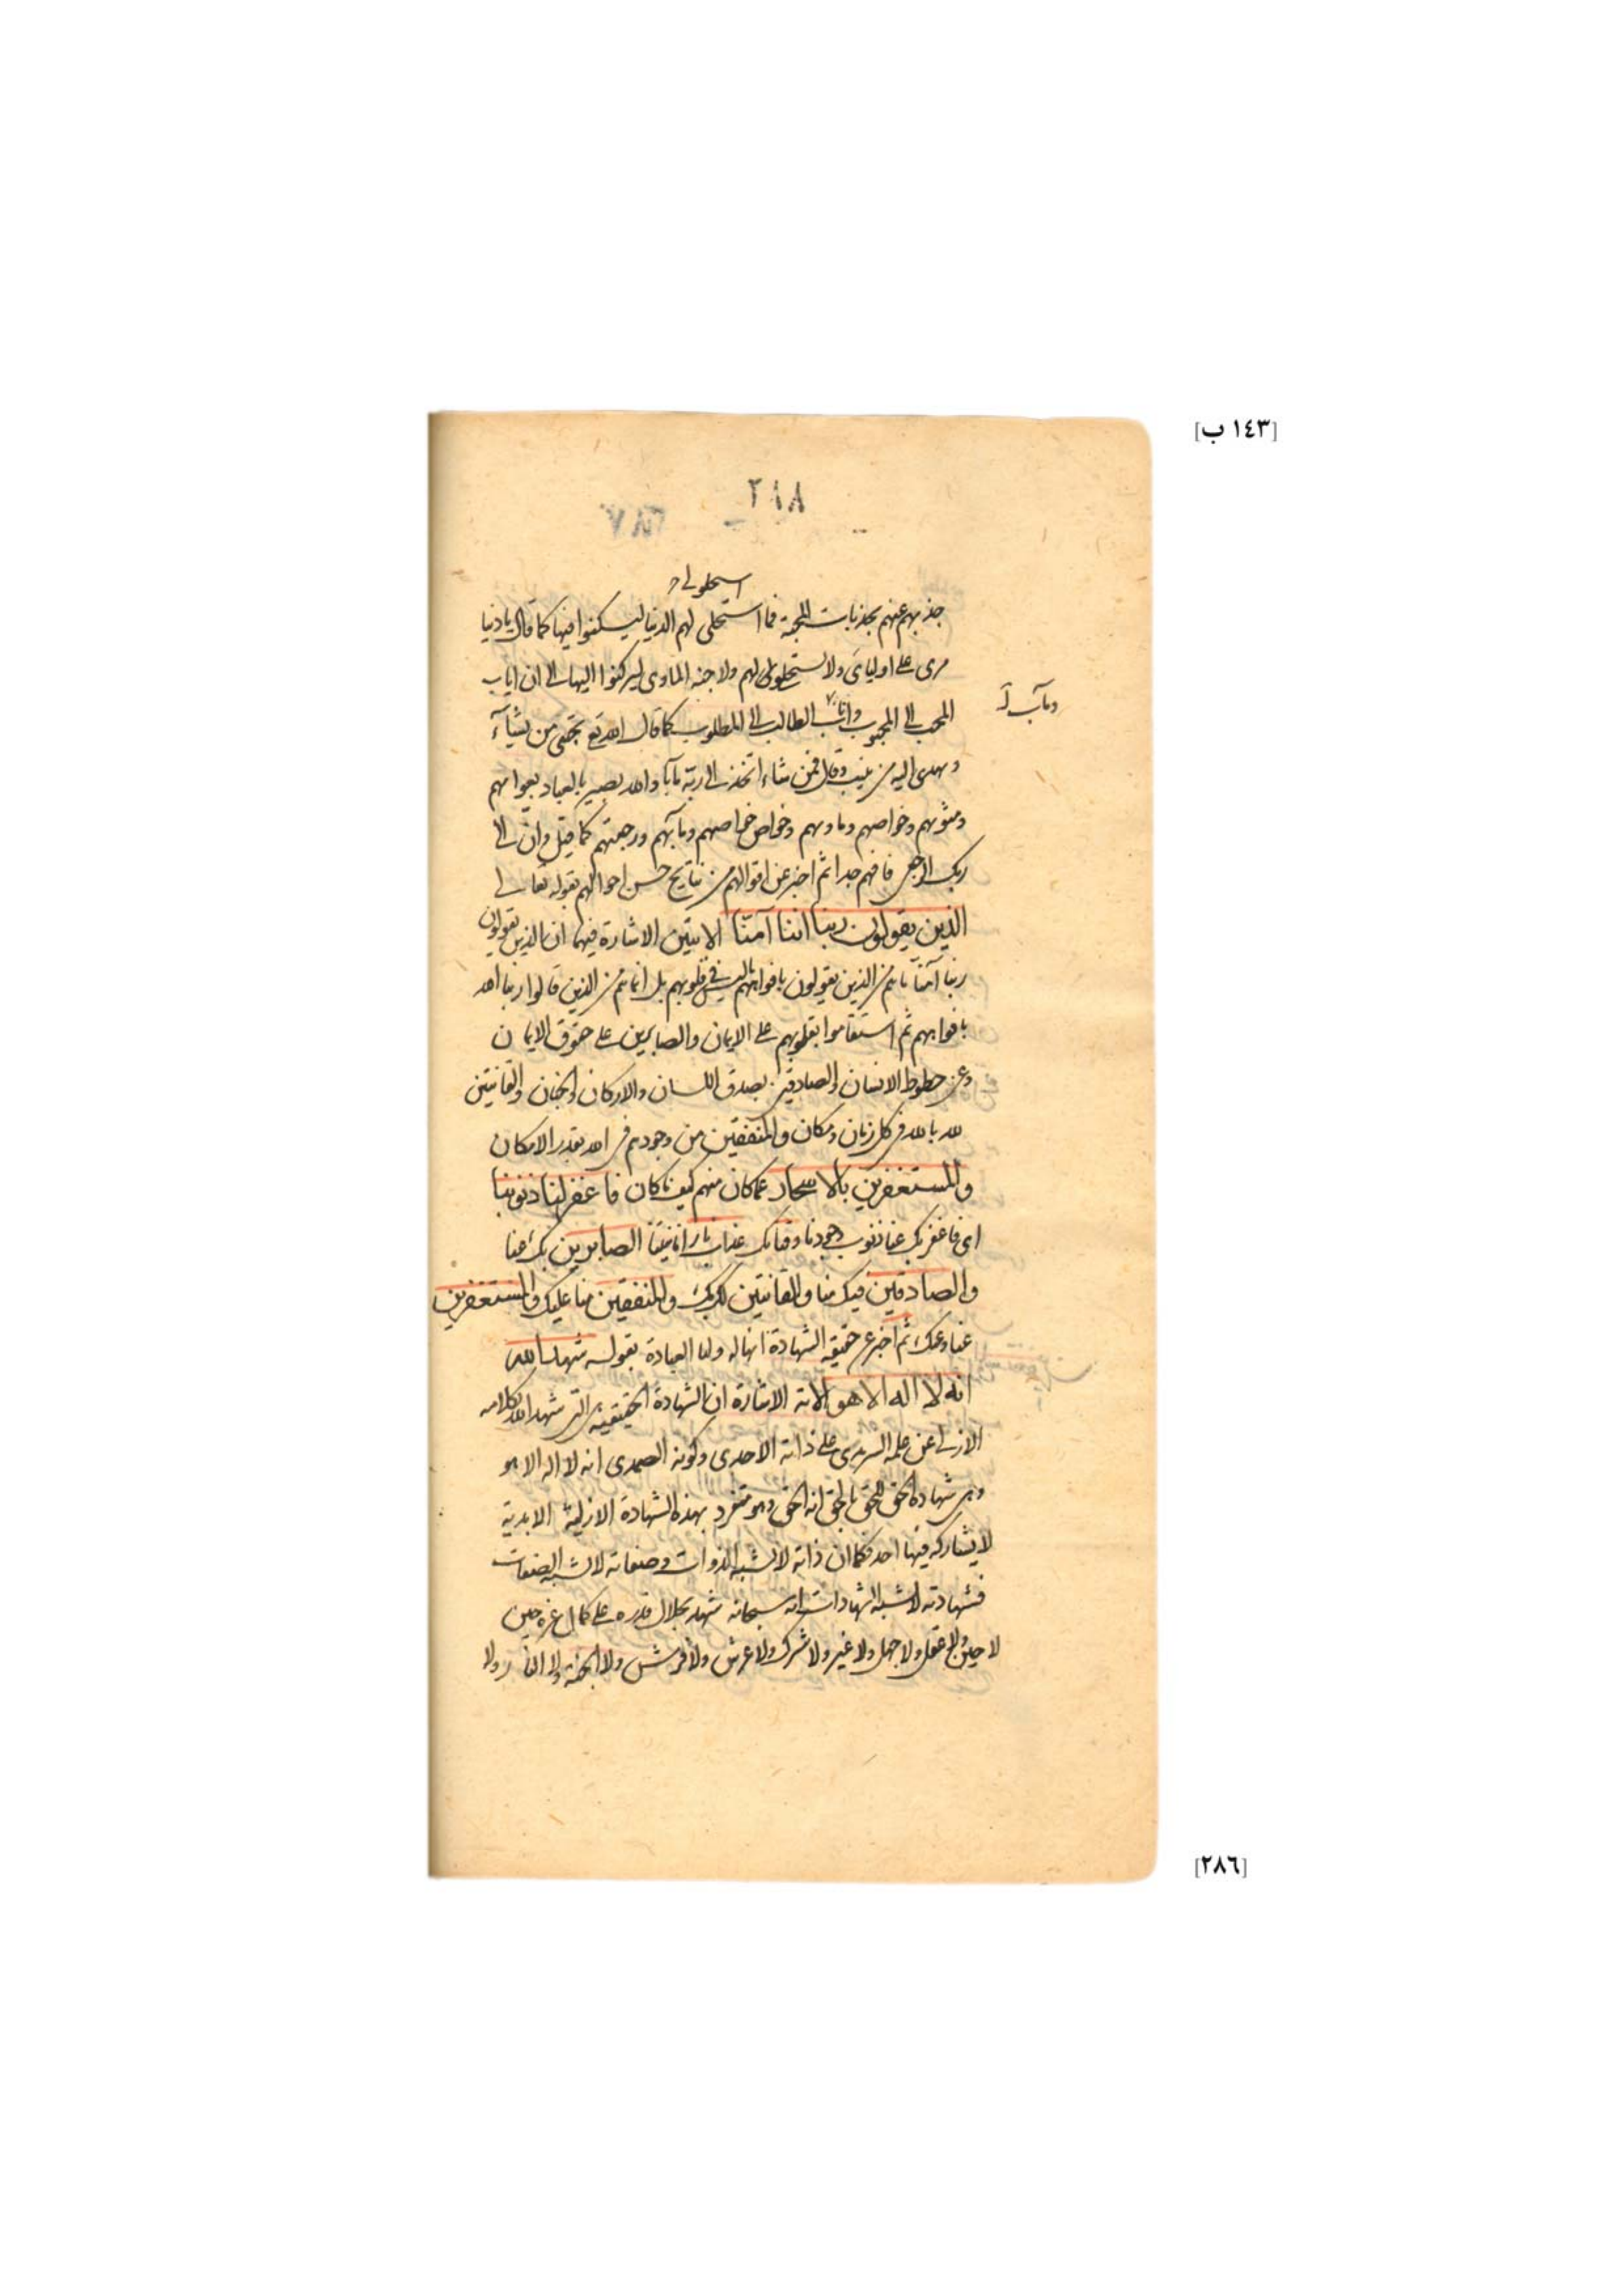 [١٤٣ ب]
٢١٨
٢٨٧
استحلولى
جذبهم عنهم بجذبات المحبة فما استحلى لهم الدنيا ليسكنوا فيها كما قال يا دنيا
مرى على اوليائى ولا تستحلولى لهم ولا جنة الماوى ليركنوا اليها الى ان اياب
ومآب
المحب الى المحبوب واناب الطالب الى المطلوب كما قال الله تع يجتبى من يشآء
ويهدى اليه من ينيب وقال فمن شاء اتخذ الى ربه مآبا والله بصير بالعباد بعوامهم
ومثويهم وخواصهم وماويهم وخواص خواصهم ومآبهم ورجعتهم كما قيل وان الى
ربك الرجعى فافهم جدا ثم اخبر عن اقوالهم من نتايج حسن احوالهم بقوله تعالى
الذين يقولون ربنا اننا آمنا الايتين الاشارة فيهما ان الذين يقولون
ربنا آمنا ما هم من الذين يقولون بافواههم ما ليس فى قلوبهم بل انما هم من الذين قالوا ربنا الله
بافواههم ثم استقاموا بقلوبهم على الايمان والصابرين على حقوق الايمان
وعن حظوظ الانسان والصادقين بصدق اللسان والاركان والجنان والقانتين
لله بالله فى كل زمان ومكان والمنفقين من وجودهم فى الله بقدر الامكان
والمستغفرين بالاسحار عما كان منهم كيف ما كان فاغفر لنا ذنوبنا
اى فاغفر بك عنا ذنوب وجودنا وقنا بك عذاب نار انانيتنا الصابرين بك عنا
والصادقين فيك منا والقانتين لك بك والمنفقين منا عليك والمستغفرين
عنا وعنك ثم اخبر عن حقيقة الشهادة انها له ولنا العبادة بقوله شهد الله
انه لا اله الا هو الاية الاشارة ان الشهادة الحقيقية التى شهد الله بكلامه
الازلى عن علمه السرمدى على ذاته الاحدى وكونه الصمدى انه لا اله الا هو
وهى شهادة الحق للحق بالحق انه الحق وهو متفرد بهذه الشهادة الازلية الابدية
لا يشاركه فيها احد فكما ان ذاته لا تشبه الذوات وصفاته لا تشبه الصفات
فشهادته لا تشبه الشهادات انه سبحانه شهد بجلال قدره على كمال عزه حين
لا حين ولا عقل ولا جهل ولا غير ولا شرك ولا عرش ولا فرش ولا الجنة ولا النار ولا
[٢٨٦]